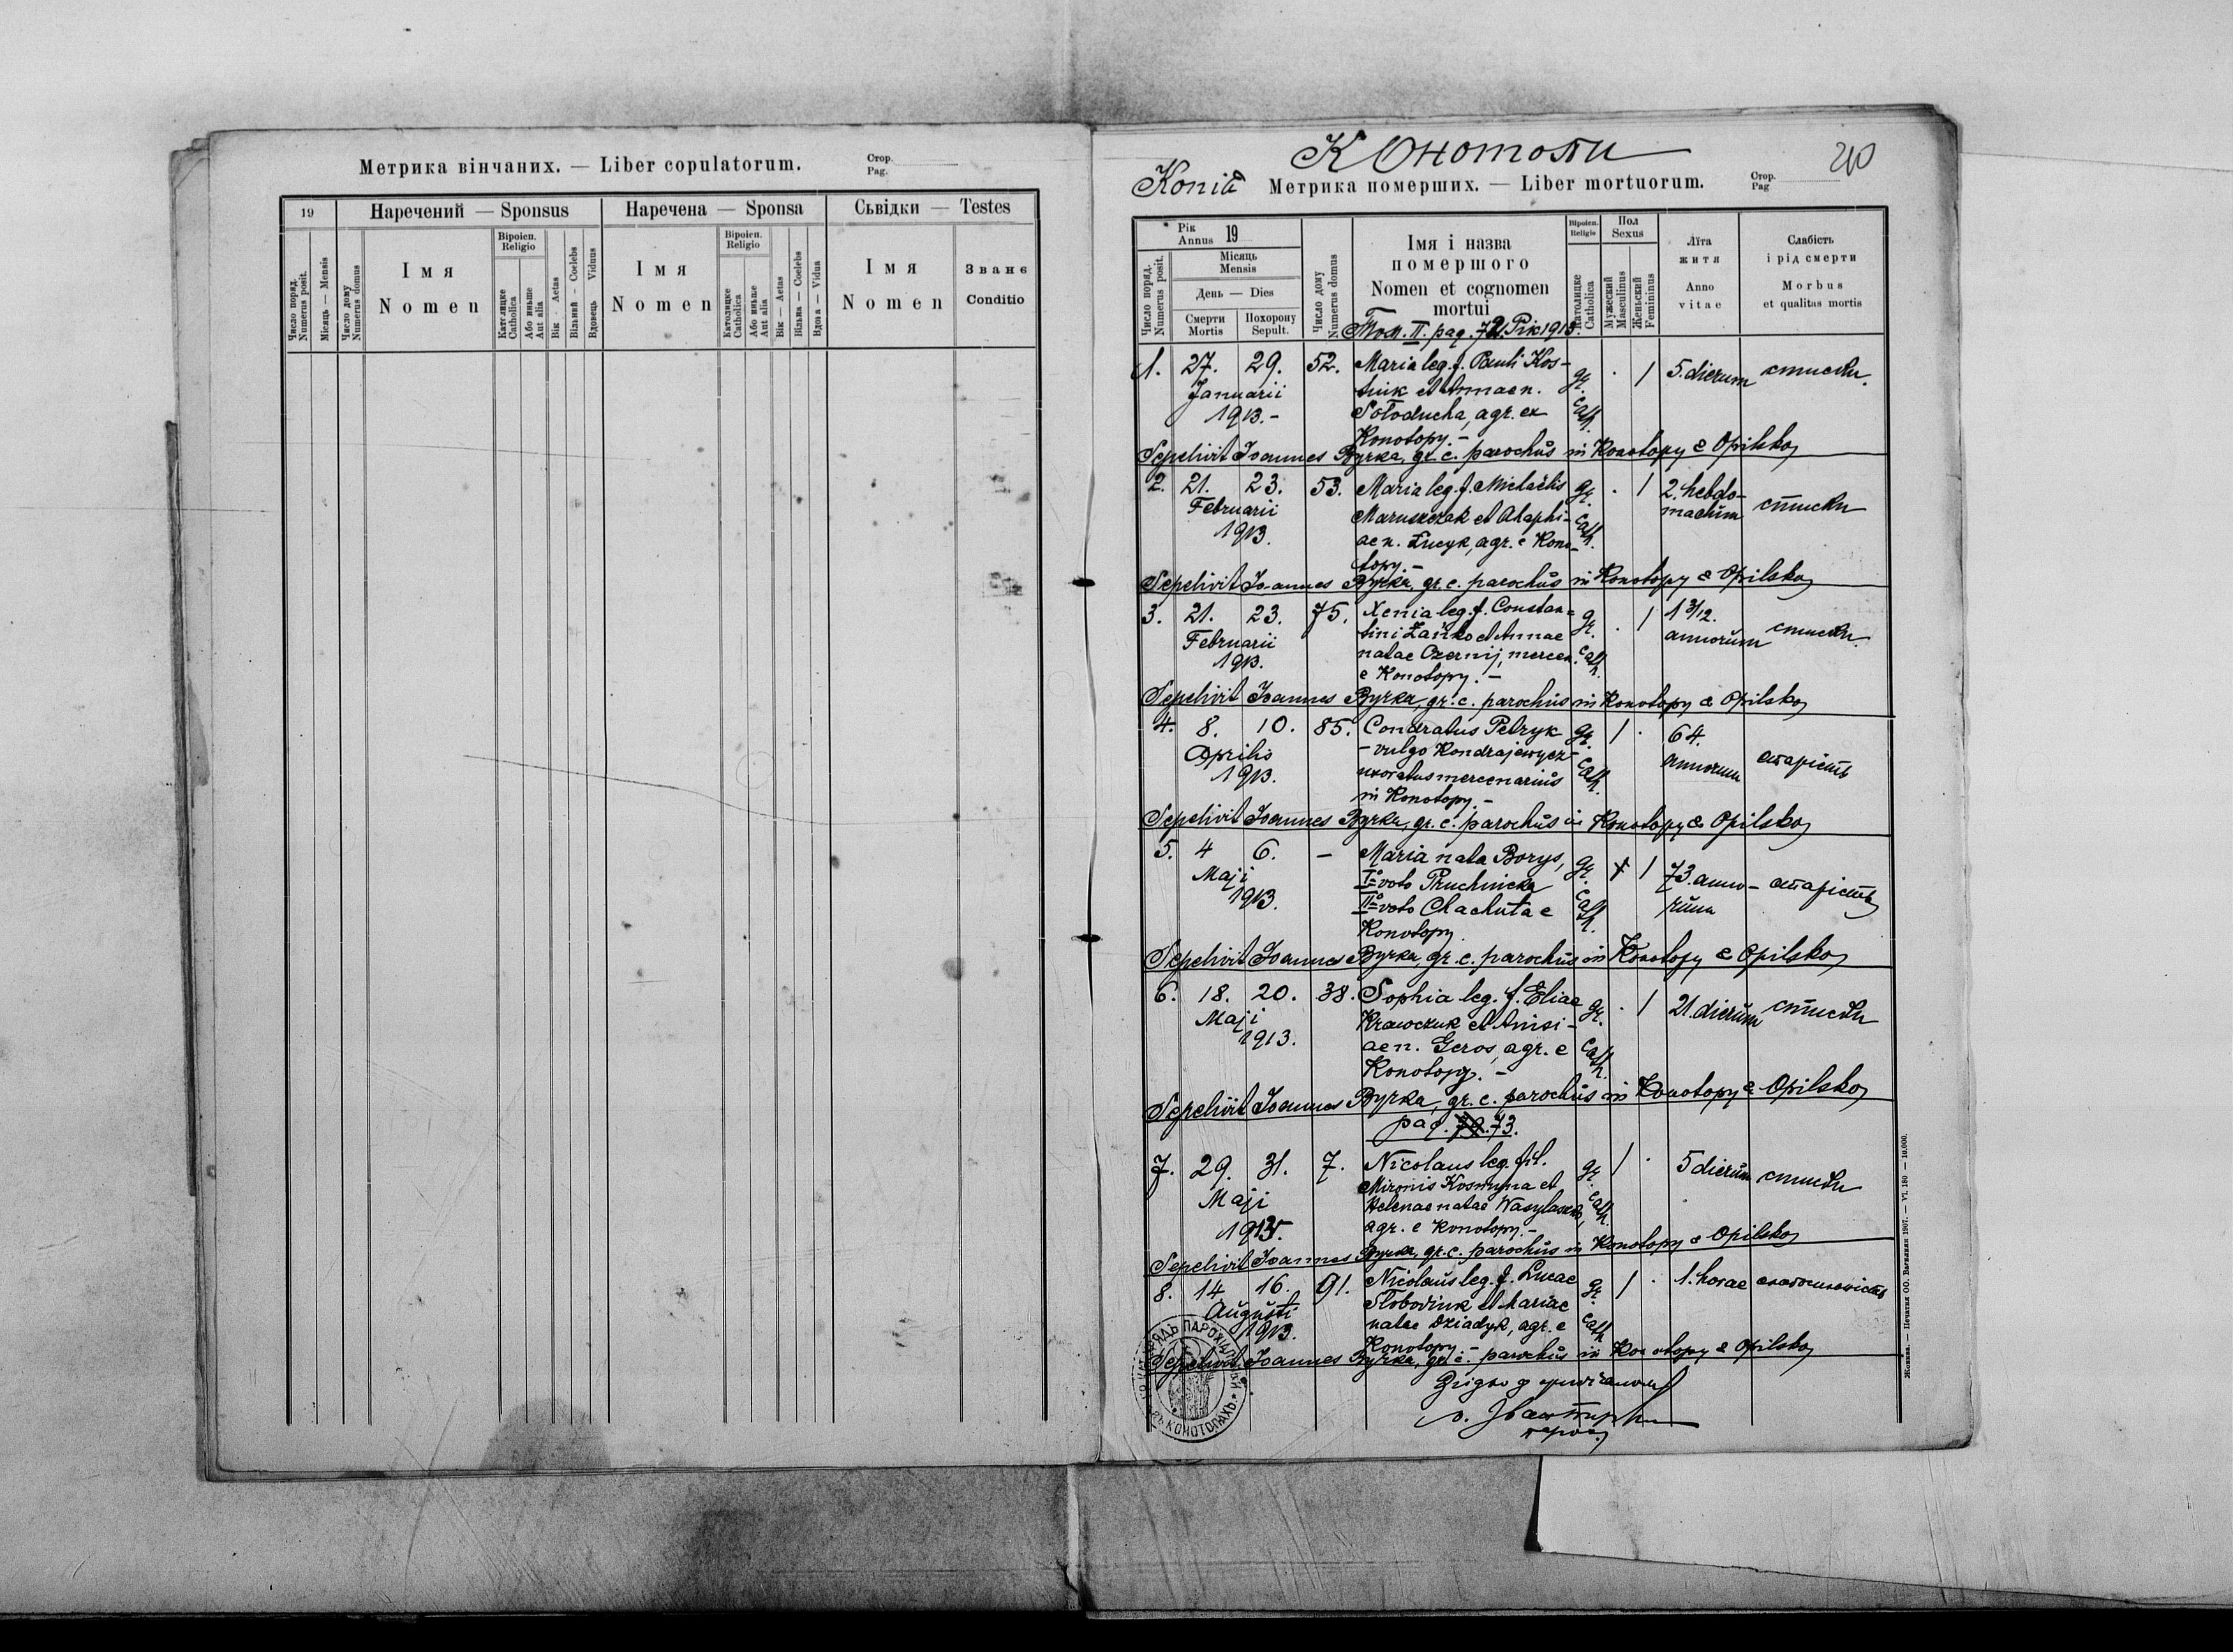 Метрика вінчаних. — Liber copulatorum.
Стор.
Pag.
19
Наречений — Sponsus
Наречена — Sponsa
Сьвідки — Testes
Число поряд.
Numerus posit.
Місяць — Mensis
Число дому
Numerus domus
Імя
Nomen
Віроісп.
Religio
Католицке
Catholica
Або иньше
Aut alia
Вік - Aetas
Вільний - Coelebs
Вдовець Viduus
Імя
Nomen
Віроісп.
Religio
Католицке
Catholica
Або иньше
Aut alia
Вік — Aetas
Вільна — Coelebs
Вдова — Vidua
Імя
Nomen
Званє
Conditio
Конотопи
20
Konia Метрика померших. — Liber mortuorum.
Стор.
Pag
Рік
Annus 19
Місяць
Mensis
День — Dies
Число поряд.
Numerus posit.
Смерти
Mortis
Похорону
Sepult.
Число дому
Numerus domus
Імя і назва
помершого
Nomen et cognomen
mortui
Том. II. pag. 72. Рік 1913.
Віроісп.
Religio
Католицке
Catholica
Пол
Sexus
Мужеский
Masculinus
Женьский
Femininus
Лїта
житя
Anno
vitae
Слабість
і рід смерти
Morbus
et qualitas mortis
1. 27. 29. 52. Maria leg. f. Pauli Kos- gr. · 1 5. dierum стиски.
Januarii tiuk et Annae n.
1913.- Sołoducha, agr. ex cath.
Konotopy.-
Sepelivit Joannes Byrka, gr. c. parochus in Konotopy & Opilsko
2. 21. 23. 53. Maria leg. f. Michaëlis gr. · 1 2. hebdo-
Februarii Maruszczak et Ahaphi- cath. madum стиски
1913. ae n. Łucyk, agr. e Kono-
topy.-
Sepelivit Joannes Byrka, gr. c. parochus in Konotopy & Opilsko
3. 21. 23. 75. Xenia leg. f. Constan- gr. · 1 1 3/12.
Februarii tini Łańko et Annae annorum стиски.
1913. natae Czernij, mercen. cath.
e Konotopy.-
Sepelivit Joannes Byrka, gr. c. parochus in Konotopy & Opilsko
4. 8. 10. 85. Condratus Petryk gr. 1 · 64.
Aprilis - vulgo Kondrajewycz - annorum старість
1913. uxoratus mercenarius cath.
in Konotopy.-
Sepelivit Joannes Byrka, gr. c. parochus in Konotopy & Opilsko
5. 4 6. – Maria nata Borys, gr. 1 73. anno- старість
Maji Iº voto Pruchnicka rum
1913. IIº voto Chachuta e cath.
Konotopy
Sepelivit Joannes Byrka, gr. c. parochus in Konotopy & Opilsko
6. 18. 20. 38. Sophia leg. f. Eliae gr. · 1 21. dierum стиски
Maji Krawczuk et Anisi-
1913. ae n. Geros, agr. e cath.
Konotopy.-
Sepelivit Joannes Byrka, gr. c. parochus in Konotopy & Opilsko
pag. 73.
7. 29. 31. 7. Nicolaus leg. fil. gr. 1 · 5 dierum стиски
Maji Mironis Kosmyna et
1913. Helenae natae Wasylaszko, cath.
agr. e Konotopy.-
Sepelivit Joannes Byrka, gr. c. parochus in Konotopy & Opilsko
8. 14 16. 91. Nicolaus leg. f. Lucae gr. 1 · 1. horae
Augusti Słobodiuk et Mariae
1913. natae Dziadyk, agr. e cath.
Konotopy.-
Sepelivit Joannes Byrka, gr. c. parochus in Konotopy & Opilsko
УРЯДЪ ПАРОХІЯЛЬНЫЙ
ВЪ КОНОТОПАХЪ
Жовква. — Печатня ОО. Василиян 1907. — VI. 180 — 10.000.